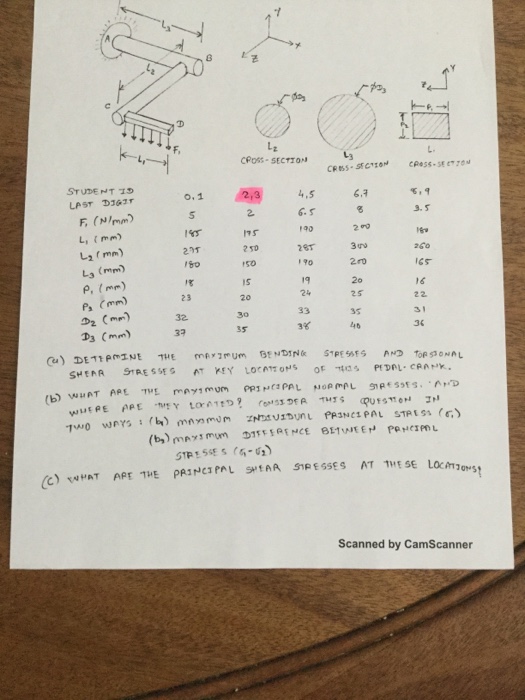 Y
L3
A
X
B
Z
L2
Y
ØD2
ØD3
Z
C
P1
D
P2
F1
L2
L3
L1
L1
CROSS-SECTION
CROSS-SECTION
CROSS-SECTION
STUDENT ID
LAST DIGIT 0,1 2,3 4,5 6,7 8,9
F1 (N/mm) 5 2 6.5 8 3.5
L1 (mm) 185 175 190 200 180
L2 (mm) 275 250 285 300 260
L3 (mm) 180 150 190 200 165
P1 (mm) 18 15 19 20 16
P2 (mm) 23 20 24 25 22
D2 (mm) 32 30 33 35 31
D3 (mm) 37 35 38 40 36
(a) DETERMINE THE MAXIMUM BENDING STRESSES AND TORSIONAL
SHEAR STRESSES AT KEY LOCATIONS OF THIS PEDAL-CRANK.
(b) WHAT ARE THE MAXIMUM PRINCIPAL NORMAL STRESSES. AND
WHERE ARE THEY LOCATED? CONSIDER THIS QUESTION IN
TWO WAYS: (b1) MAXIMUM INDIVIDUAL PRINCIPAL STRESS (σ1)
(b2) MAXIMUM DIFFERENCE BETWEEN PRNCIPAL
STRESSES (σ1-σ2)
(C) WHAT ARE THE PRINCIPAL SHEAR STRESSES AT THESE LOCATIONS?
Scanned by CamScanner